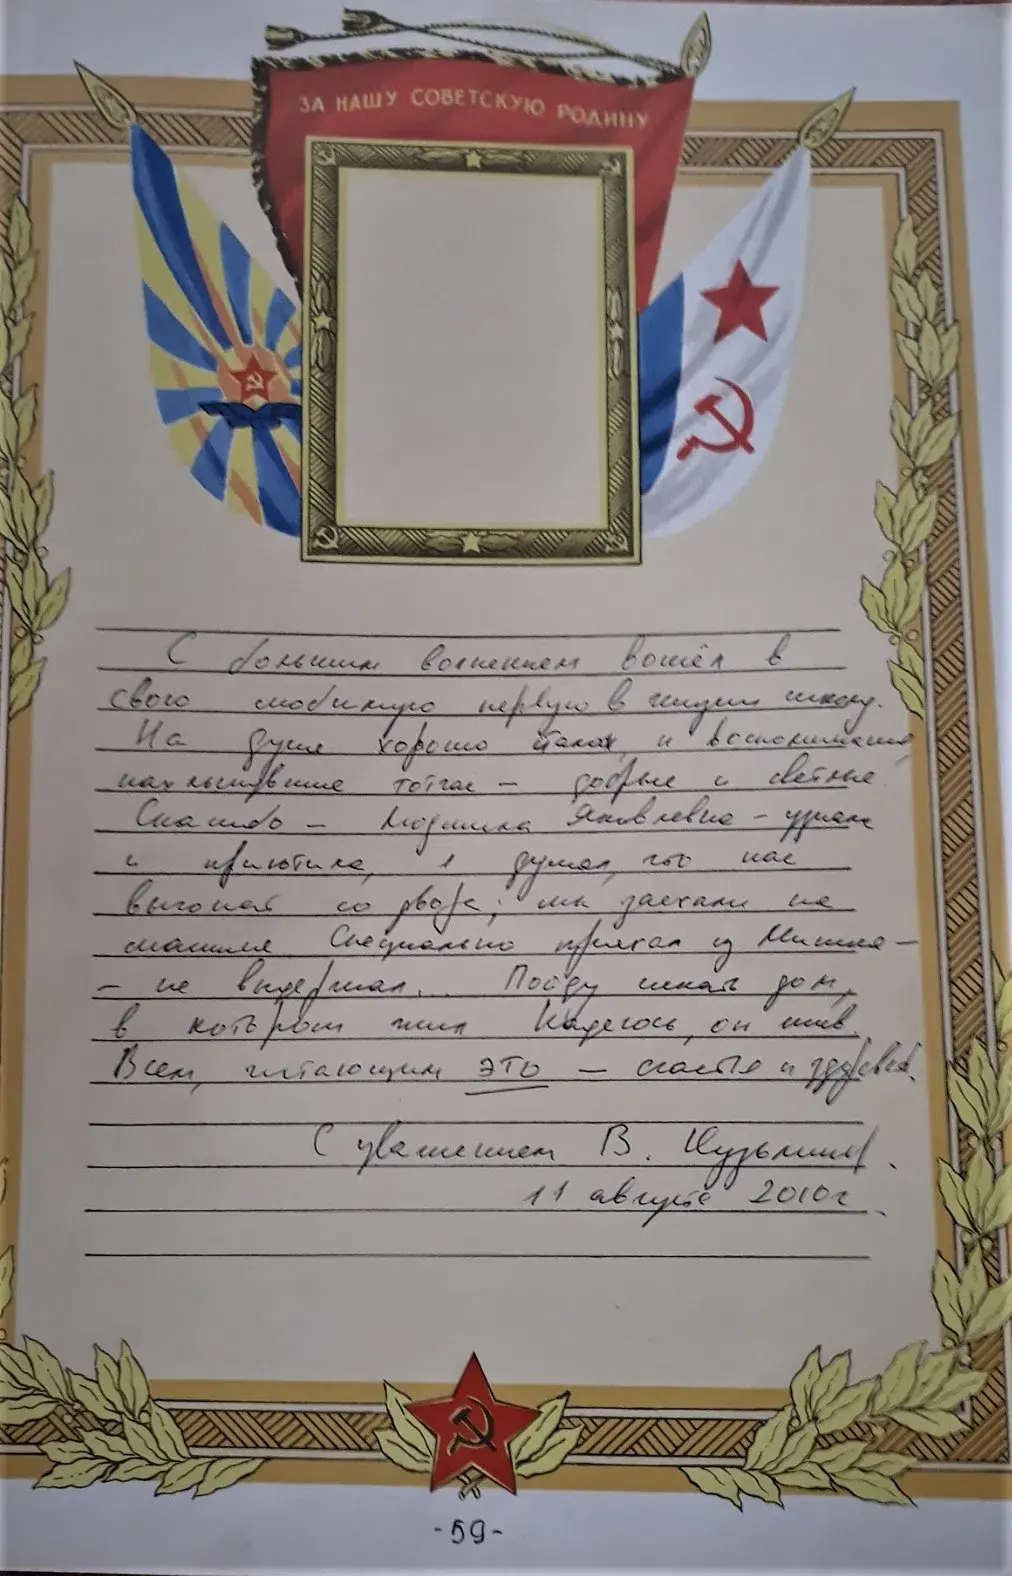 ЗА НАШУ СОВЕТСКУЮ РОДИНУ
С большим волнением вошёл в
свою любимую первую в жизни школу.
На душе хорошо стало, и воспоминания
нахлынувшие тотчас – добрые и светлые.
Спасибо – Людмила Яковлевна – узнала
и приютила, я думал, что нас
выгонят со двора; мы заехали на
машине. Специально приехал из Минска –
– не выдержал... Пойду искать дом,
в котором жил. Надеюсь, он жив.
Всем, читающим это – счастья и здоровья.
С уважением В. Кузьмин
11 августа 2010 г.
-59-